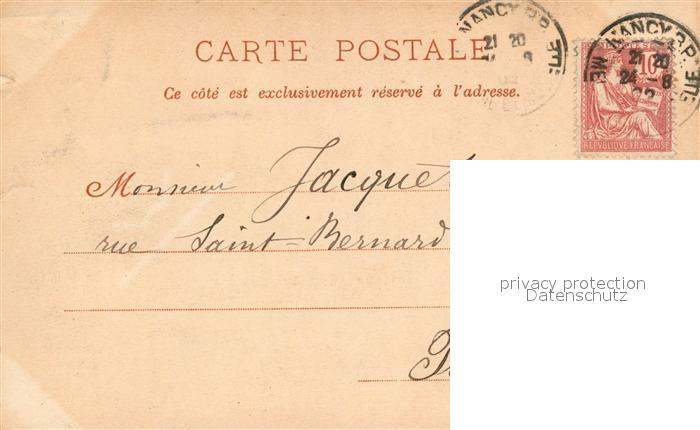 CARTE POSTALE
Ce côté est exclusivement réservé à l'adresse.
NANCY
21 20
NANCY
21 20
24 - 8
10
REPVBLIQVE FRANÇAISE
Monsieur Jacque
rue Saint-Bernard
privacy protection
Datenschutz